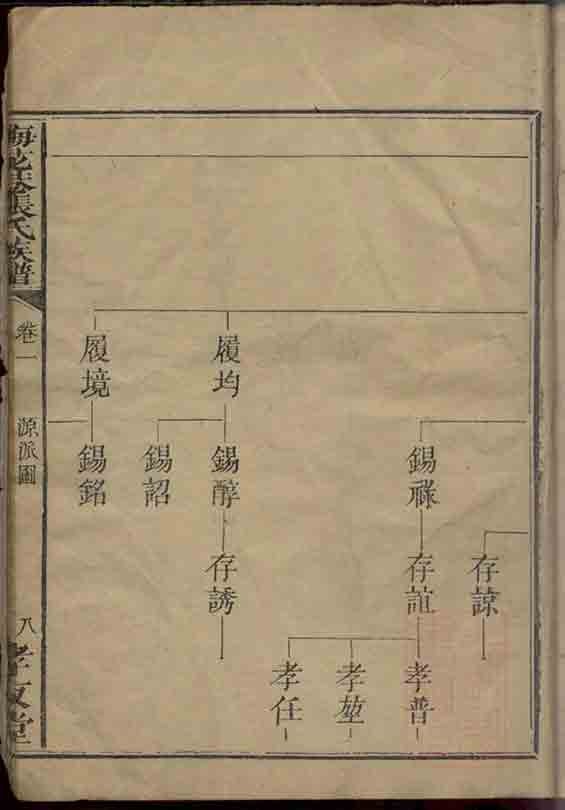 存諒
錫祿
存誼
孝普
孝堃
孝任
履均
錫醇
存誘
錫詔
履境
錫銘
張氏族譜
卷一
源派圖
八
孝友堂